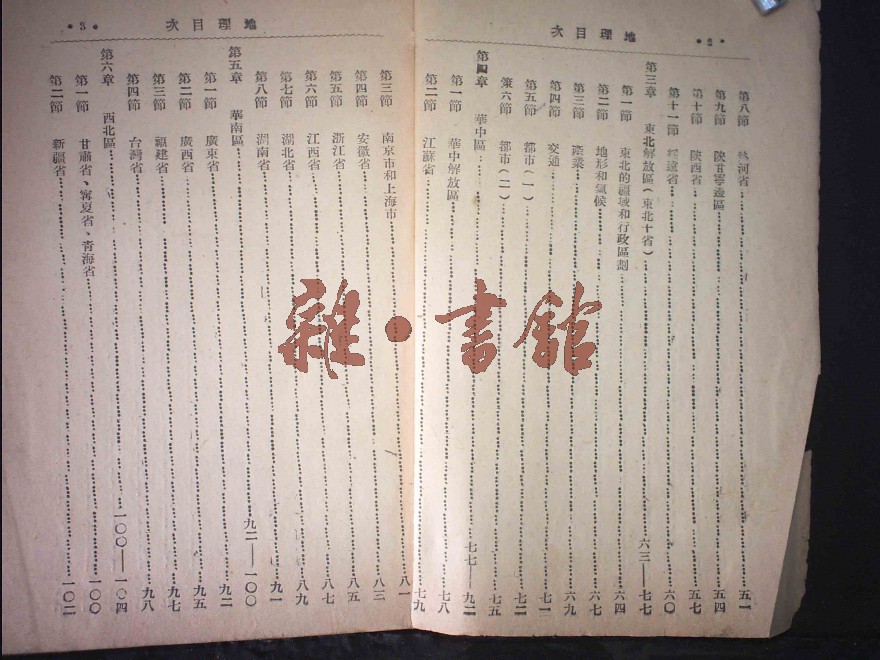 •2•
地理目次
第八節 熱河省……五一
第九節 陝甘寧邊區……五四
第十節 陝西省……五七
第十一節 綏遠省……六〇
第三章 東北解放區(東北十省)……六三—七七
第一節 東北的疆域和行政區劃……六四
第二節 地形和氣候……六七
第三節 產業……六九
第四節 交通……七一
第五節 都市(一)……七二
第六節 都市(二)……七五
第四章 華中區……七七—九二
第一節 華中解放區……七八
第二節 江蘇省……七九
地理目次
•3•
第三節 南京市和上海市……八一
第四節 安徽省……八三
第五節 浙江省……八五
第六節 江西省……八七
第七節 湖北省……八九
第八節 湖南省……九一
第五章 華南區……九二—一〇〇
第一節 廣東省……九二
第二節 廣西省……九五
第三節 福建省……九七
第四節 台灣省……九八
第六章 西北區……一〇〇—一〇四
第一節 甘肅省、寧夏省、青海省……一〇〇
第二節 新疆省……一〇二
雜·書館